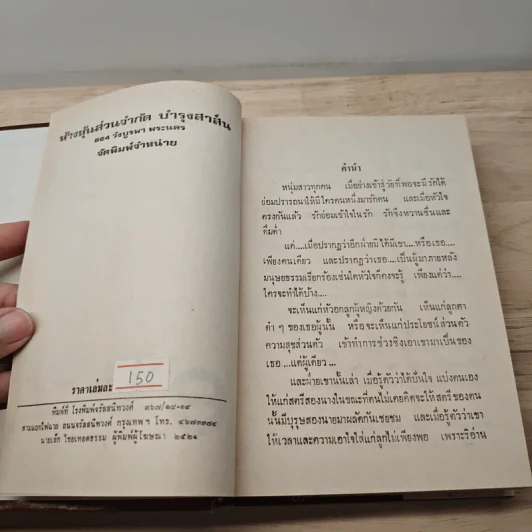 ห้างหุ้นส่วนจำกัด บำรุงสาส์น
๑๑๔ วังบูรพา พระนคร
จัดพิมพ์จำหน่าย
ราคาเล่มละ 150
พิมพ์ที่ โรงพิมพ์จรัลสนิทวงศ์ ๓๖๗/๑๘-๑๙
ถนนจรัลสนิทวงศ์ กรุงเทพฯ โทร.
นายเล็ก ไทยเทอดธรรม ผู้พิมพ์ผู้โฆษณา ๒๕๒๑
คำนำ
หนุ่มสาวทุกคน เมื่อย่างเข้าสู่วัยที่พอจะมีรักได้
ย่อมปรารถนาให้มีใครคนหนึ่งมารักตน และเมื่อหัวใจ
ตรงกันแล้ว รักย่อมเข้าใจในรัก รักจึงหวานชื่นและ
ดื่มด่ำ
แต่....เมื่อปรากฏว่าอีกฝ่ายมิได้มีเขา....หรือเธอ....
เพียงคนเดียว และปรากฏว่าเธอ....เป็นผู้มาภายหลัง
มนุษยธรรมเรียกร้องเช่นใดหัวใจก็คงจะรู้ เพียงแต่ว่า....
ใครจะทำได้บ้าง....
จะเห็นแก่หัวอกลูกผู้หญิงด้วยกัน เห็นแก่ลูกตา
ดำ ๆ ของเธอผู้นั้น หรือจะเห็นแก่ประโยชน์ส่วนตัว
ความสุขส่วนตัว เข้าทำการช่วงชิงเอาเขามาเป็นของ
เธอ....แต่ผู้เดียว....
และฝ่ายเขานั้นเล่า เมื่อรู้ตัวว่าได้ปันใจ แบ่งตนเอง
ให้แก่สตรีสองนางในขณะที่ตนไม่เคยคิดจะให้สตรีของตน
นั้นมีบุรุษสองนายมาผลัดกันเชยชม และเมื่อรู้ตัวว่าเขา
ให้เวลาและความเอาใจใส่แก่ลูกไม่เพียงพอ เพราะรีอ่าน